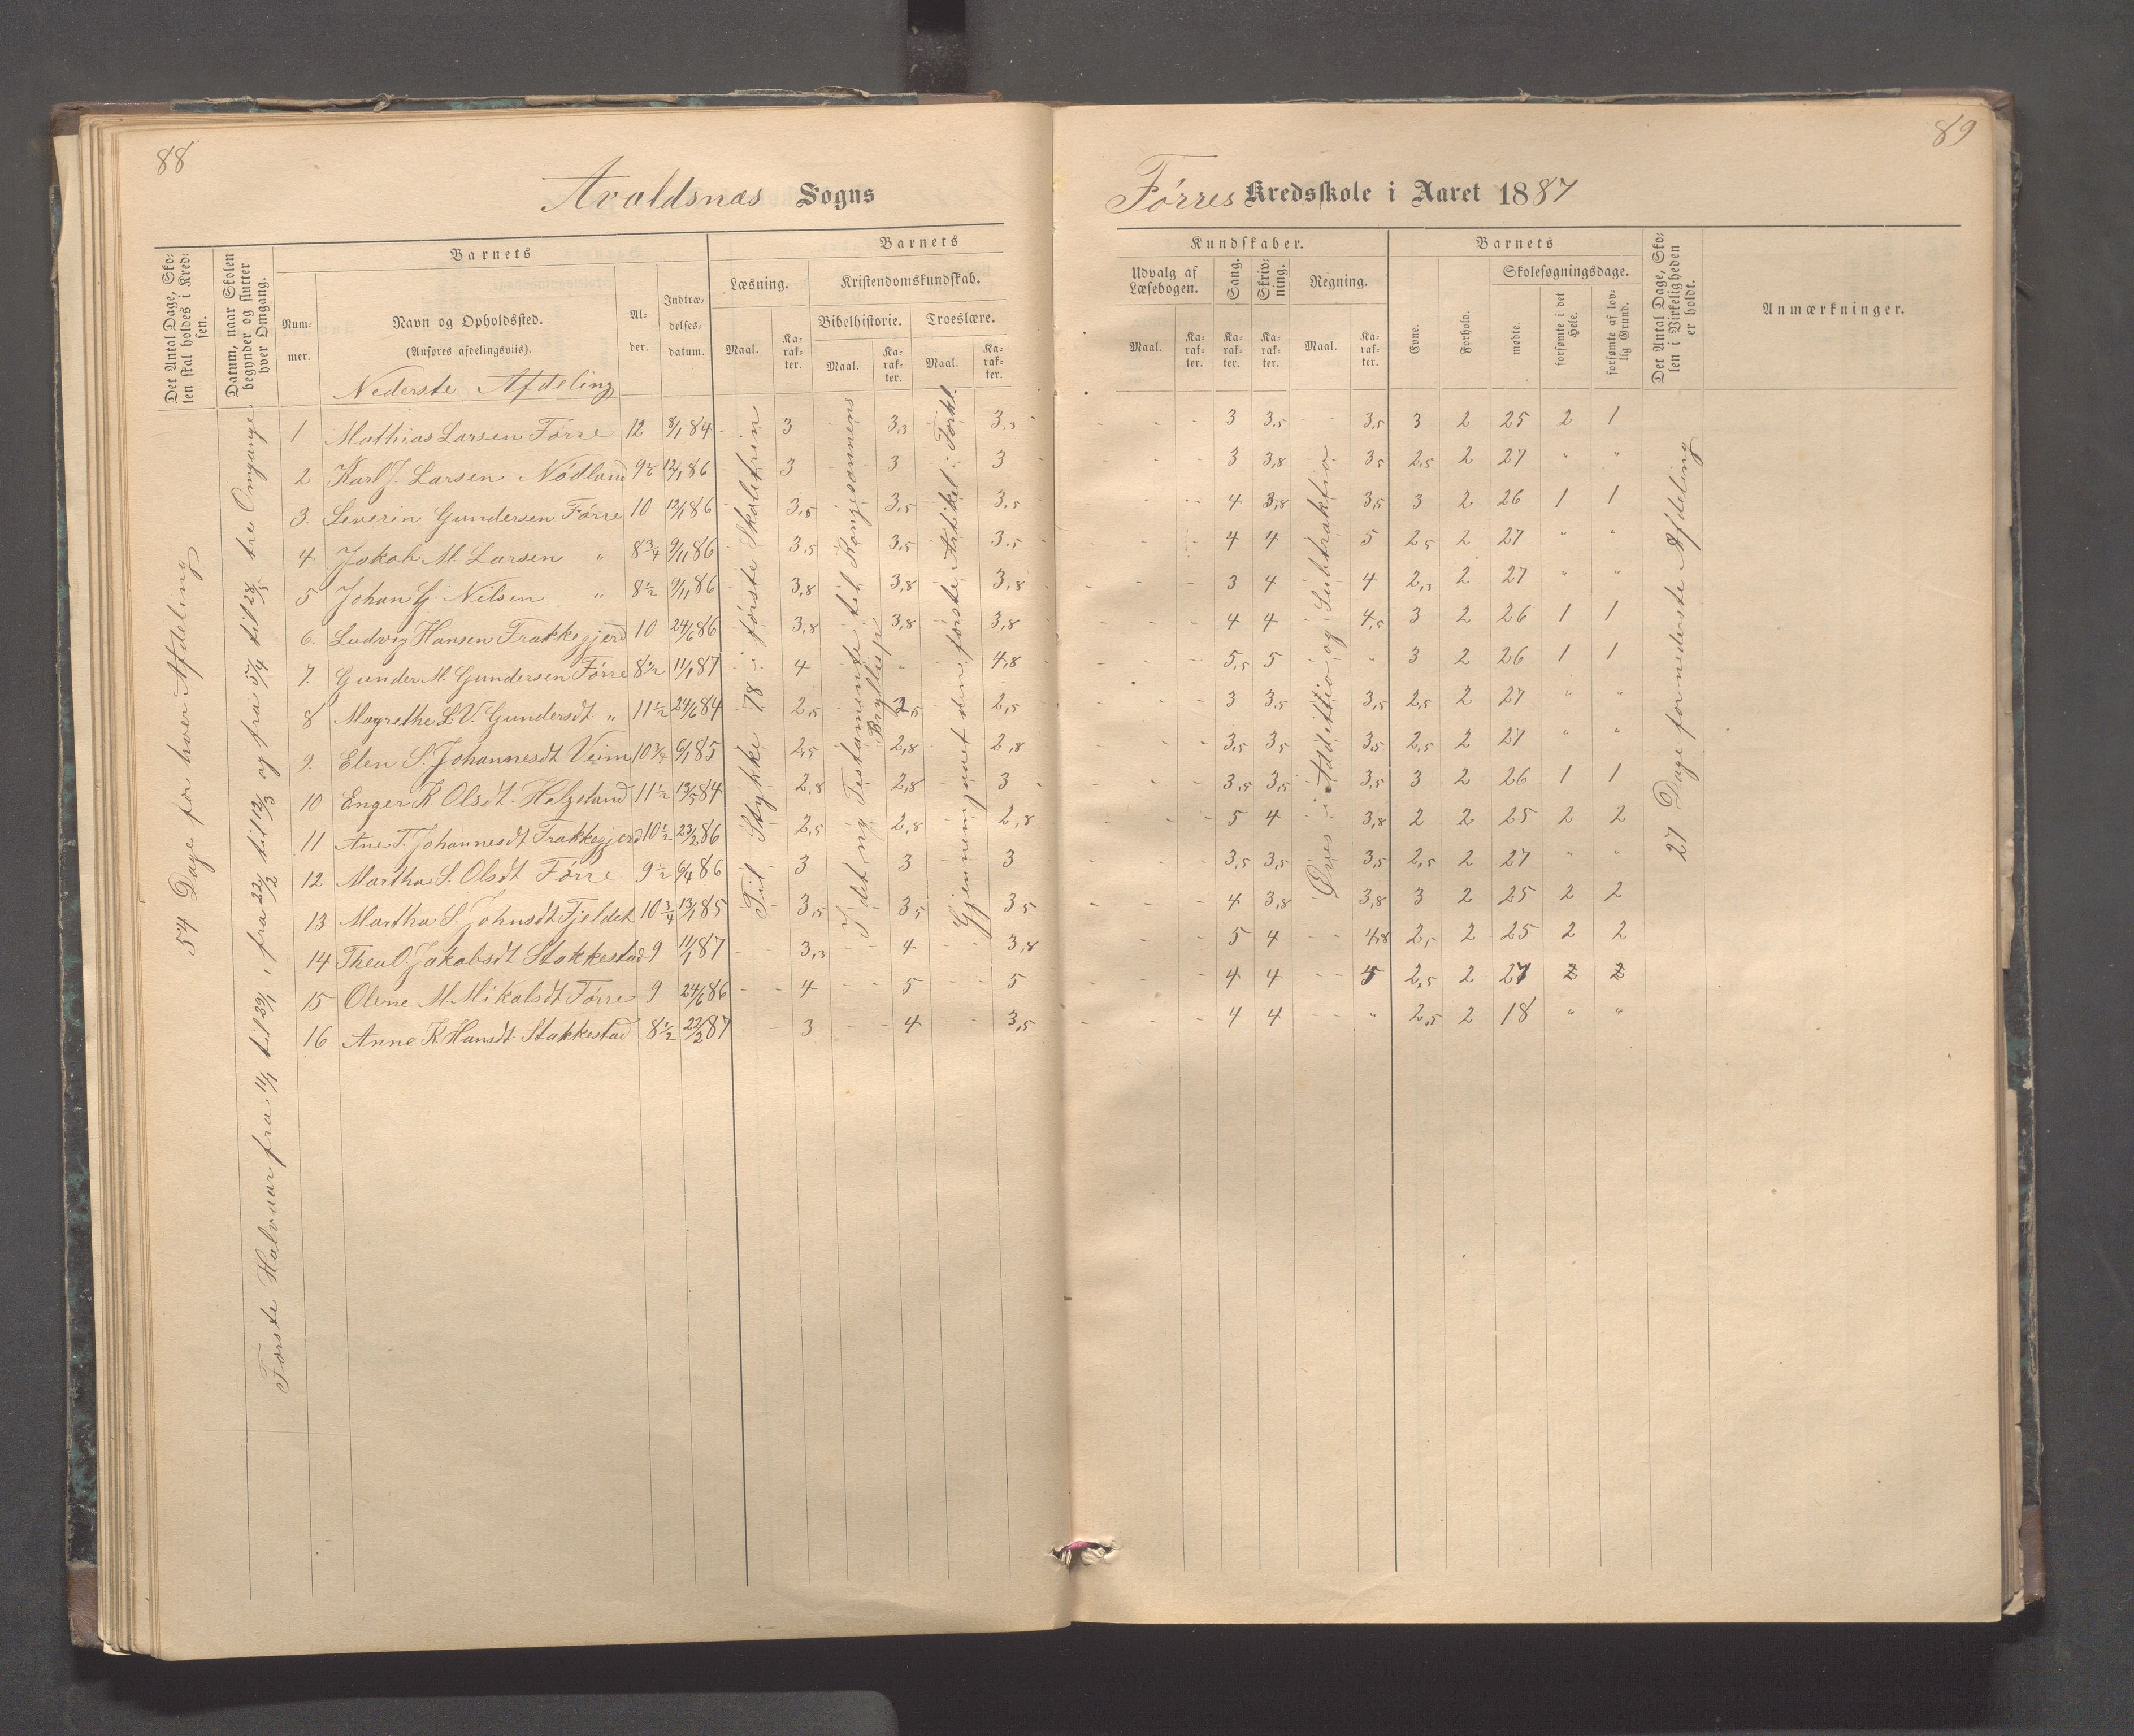 88
89
Avaldsnæs Sogns
Førres Kredsskole i Aaret 1887
Det Antal Dage, Skolen skal holdes i Kredsen.
Datum, naar Skolen begynder og slutter hver Omgang.
Barnets
Nummer.
Navn og Opholdssted.
(Anføres afdelingsviis).
Alder.
Indtrædelsesdatum.
Barnets
Læsning.
Kristendomskundskab.
Bibelhistorie.
Troeslære.
Maal.
Karakter.
Maal.
Karakter.
Maal.
Karakter.
Kundskaber.
Udvalg af Læsebogen.
Sang.
Skrivning.
Regning.
Maal.
Karakter.
Karakter.
Karakter.
Maal.
Karakter.
Barnets
Evne.
Forhold.
Skolesøgningsdage.
mødte.
forsømte i det Hele.
forsømte af lovlig Grund.
Det Antal Dage, Skolen i Virkeligheden er holdt.
Anmærkninger.
Nederste Afdeling
54 Dage for hver Afdeling
Første Halvaar fra 11/1 til 39/1, fra 22/2 til 12/3 og fra 5/4 til 28/5 tre Omgange
Til Stykke 78 i første Skoletrin
I det ny Testamente til Kongesønnens Bryllup
Gjennemgaaet den første Artikel i Forkl.
Øves i Addition og Subtraktion
27 Dage for nederste Afdeling
1 Mathias Larsen Førre 12 8/1 84 3 3,3 3,3 3 3,5 3,5 3 2 25 2 1
2 Karl J. Larsen Nødland 9½ 12/1 86 3 3 3 3 3,8 3,5 2,5 2 27 " "
3. Severin Gundersen Førre 10 12/1 86 3,5 3,5 3,5 4 3,8 3,5 3 2 26 1 1
4 Jakob M. Larsen " 8¾ 9/11 86 3,5 3,5 3,5 4 4 5 2,5 2 27 " "
5 Johan G. Nilsen " 8½ 9/11 86 3,8 3,8 3,8 3 4 4 2,3 2 27 " "
6. Ludvig Hansen Frakkegjerd 10 24/6 86 3,8 3,8 3,8 4 4 4,5 3 2 26 1 1
7. Gunder M. Gundersen Førre 8½ 11/1 87 4 " 4,8 5,5 5 " 3 2 26 1 1
8 Magrethe L. V. Gundersdt " 11½ 24/6 84 2,5 2,5 2,5 3 3,5 3,5 2,5 2 27 " "
9. Elen S. Johannesdt Veim 10¾ 6/1 85 2,5 2,8 2,8 3,5 3,5 3,5 2,5 2 27 " "
10 Enger K Olsdt. Helgeland 11½ 13/5 84 2,8 2,8 3 3,5 3,5 3,5 3 2 26 1 1
11 Ane T. Johannesdt Frakkegjerd 10½ 23/2 86 2,5 2,8 2,8 5 4 3,8 2 2 25 2 2
12 Martha S. Olsdt Førre 9½ 6/4 86 3 3 3 3,5 3,5 3,5 2,5 2 27 " "
13 Martha S. Johnsdt Fjeldet 10¾ 13/1 85 3,5 3,5 3,5 4 3,8 3,8 3 2 25 2 2
14 Thea O. Jakobsdt Stakkestad 9 11/1 87 3,3 4 3,8 5 4 4,8 2,5 2 25 2 2
15 Oline M. Mikalsdt Førre 9 24/6 86 4 5 5 4 4 5 2,5 2 27 2 2
16 Anne K. Hansdt. Stakkestad 8½ 22/2 87 3 4 3,5 4 4 " 2,5 2 18 " "